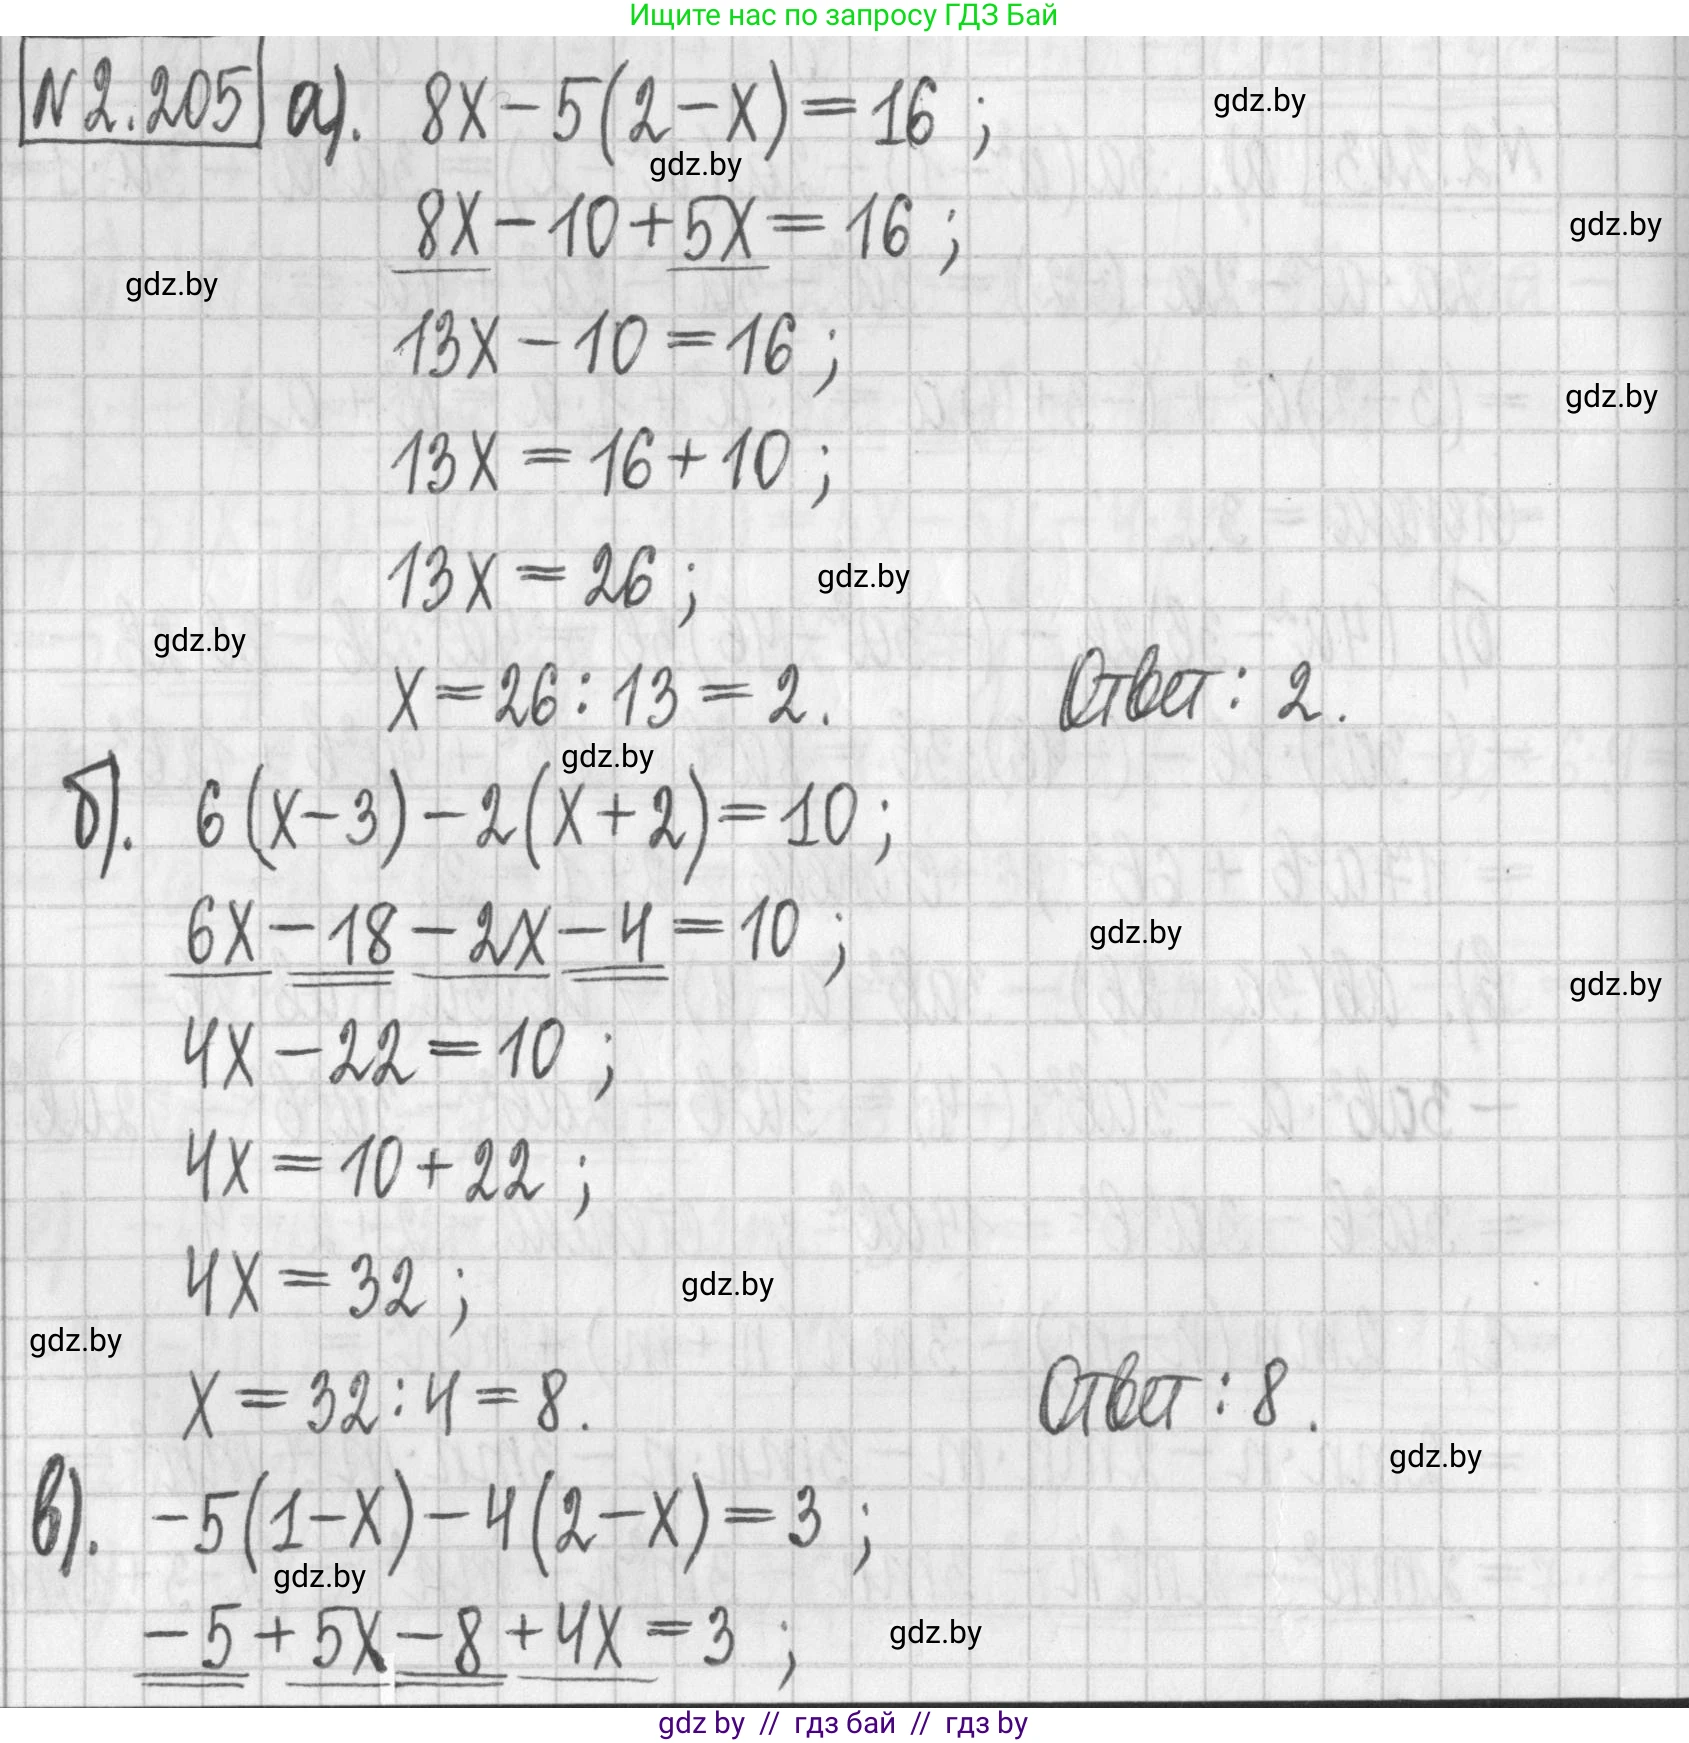 Ищите нас по запросу ГДЗ Бай
N2.205 а). 8x-5(2-x)=16;
gdz.by
gdz.by
8x-10+5x=16;
gdz.by
gdz.by
13x-10=16;
gdz.by
13x=16+10;
13x=26;
gdz.by
gdz.by
x=26:13=2. Ответ: 2.
gdz.by
б). 6(x-3)-2(x+2)=10;
6x-18-2x-4=10;
gdz.by
gdz.by
4x-22=10;
4x=10+22;
4x=32;
gdz.by
gdz.by
x=32:4=8. Ответ: 8.
gdz.by
в). -5(1-x)-4(2-x)=3;
gdz.by
-5+5x-8+4x=3;
gdz.by
gdz by // гдз бай // гдз by